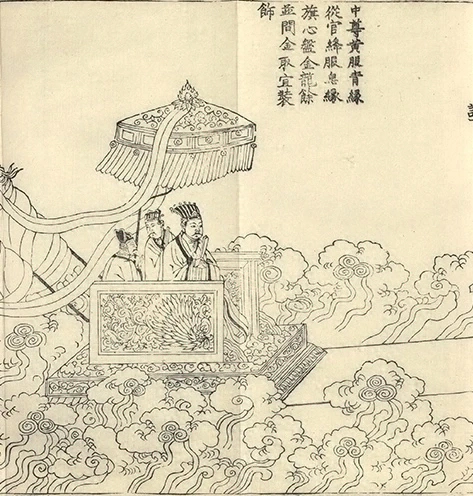 中尊黄服青緣
從官絳服皂緣
旗心盤金龍餘
並間金取宜裝
飾